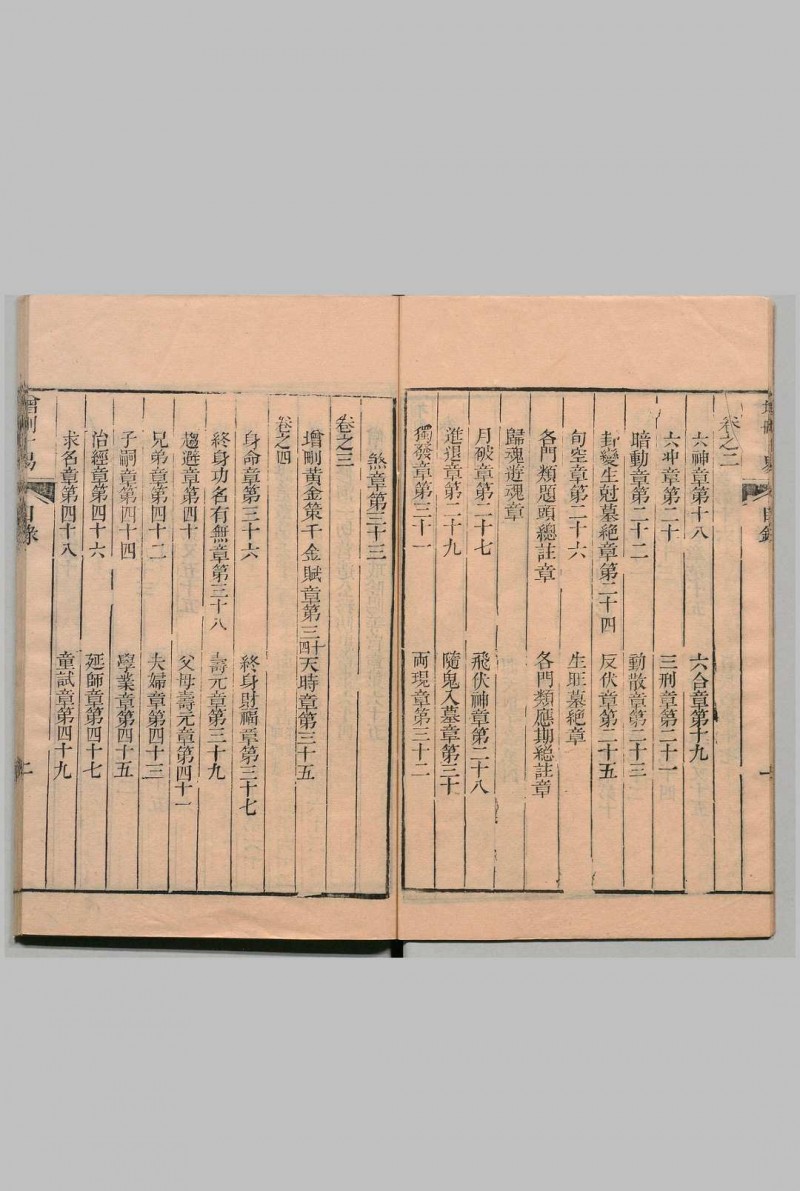 卷之二
六神章第十八　六合章第十九
六冲章第二十　三刑章第二十一
暗動章第二十二　動散章第二十三
卦變生尅墓絶章第二十四　反伏章第二十五
旬空章第二十六　生旺墓絶章
各門類題頭總註章　各門類應期緫註章
歸魂遊魂章
月破章第二十七　飛伏神章第二十八
進退章第二十九　隨鬼入墓章第三十
獨發章第三十一　両現章第三十二
煞章第三十三
卷之三
增刪黃金策千金賦章第三十四　天時章第三十五
卷之四
身命章第三十六　終身財福章第三十七
終身功名有無章第三十八　壽元章第三十九
趨避章第四十　父母壽元章第四十一
兄弟章第四十二　夫婦章第四十三
子嗣章第四十四　學業章第四十五
治經章第四十六　延師章第四十七
求名章第四十八　童試章第四十九
增刪卜易　目錄　二